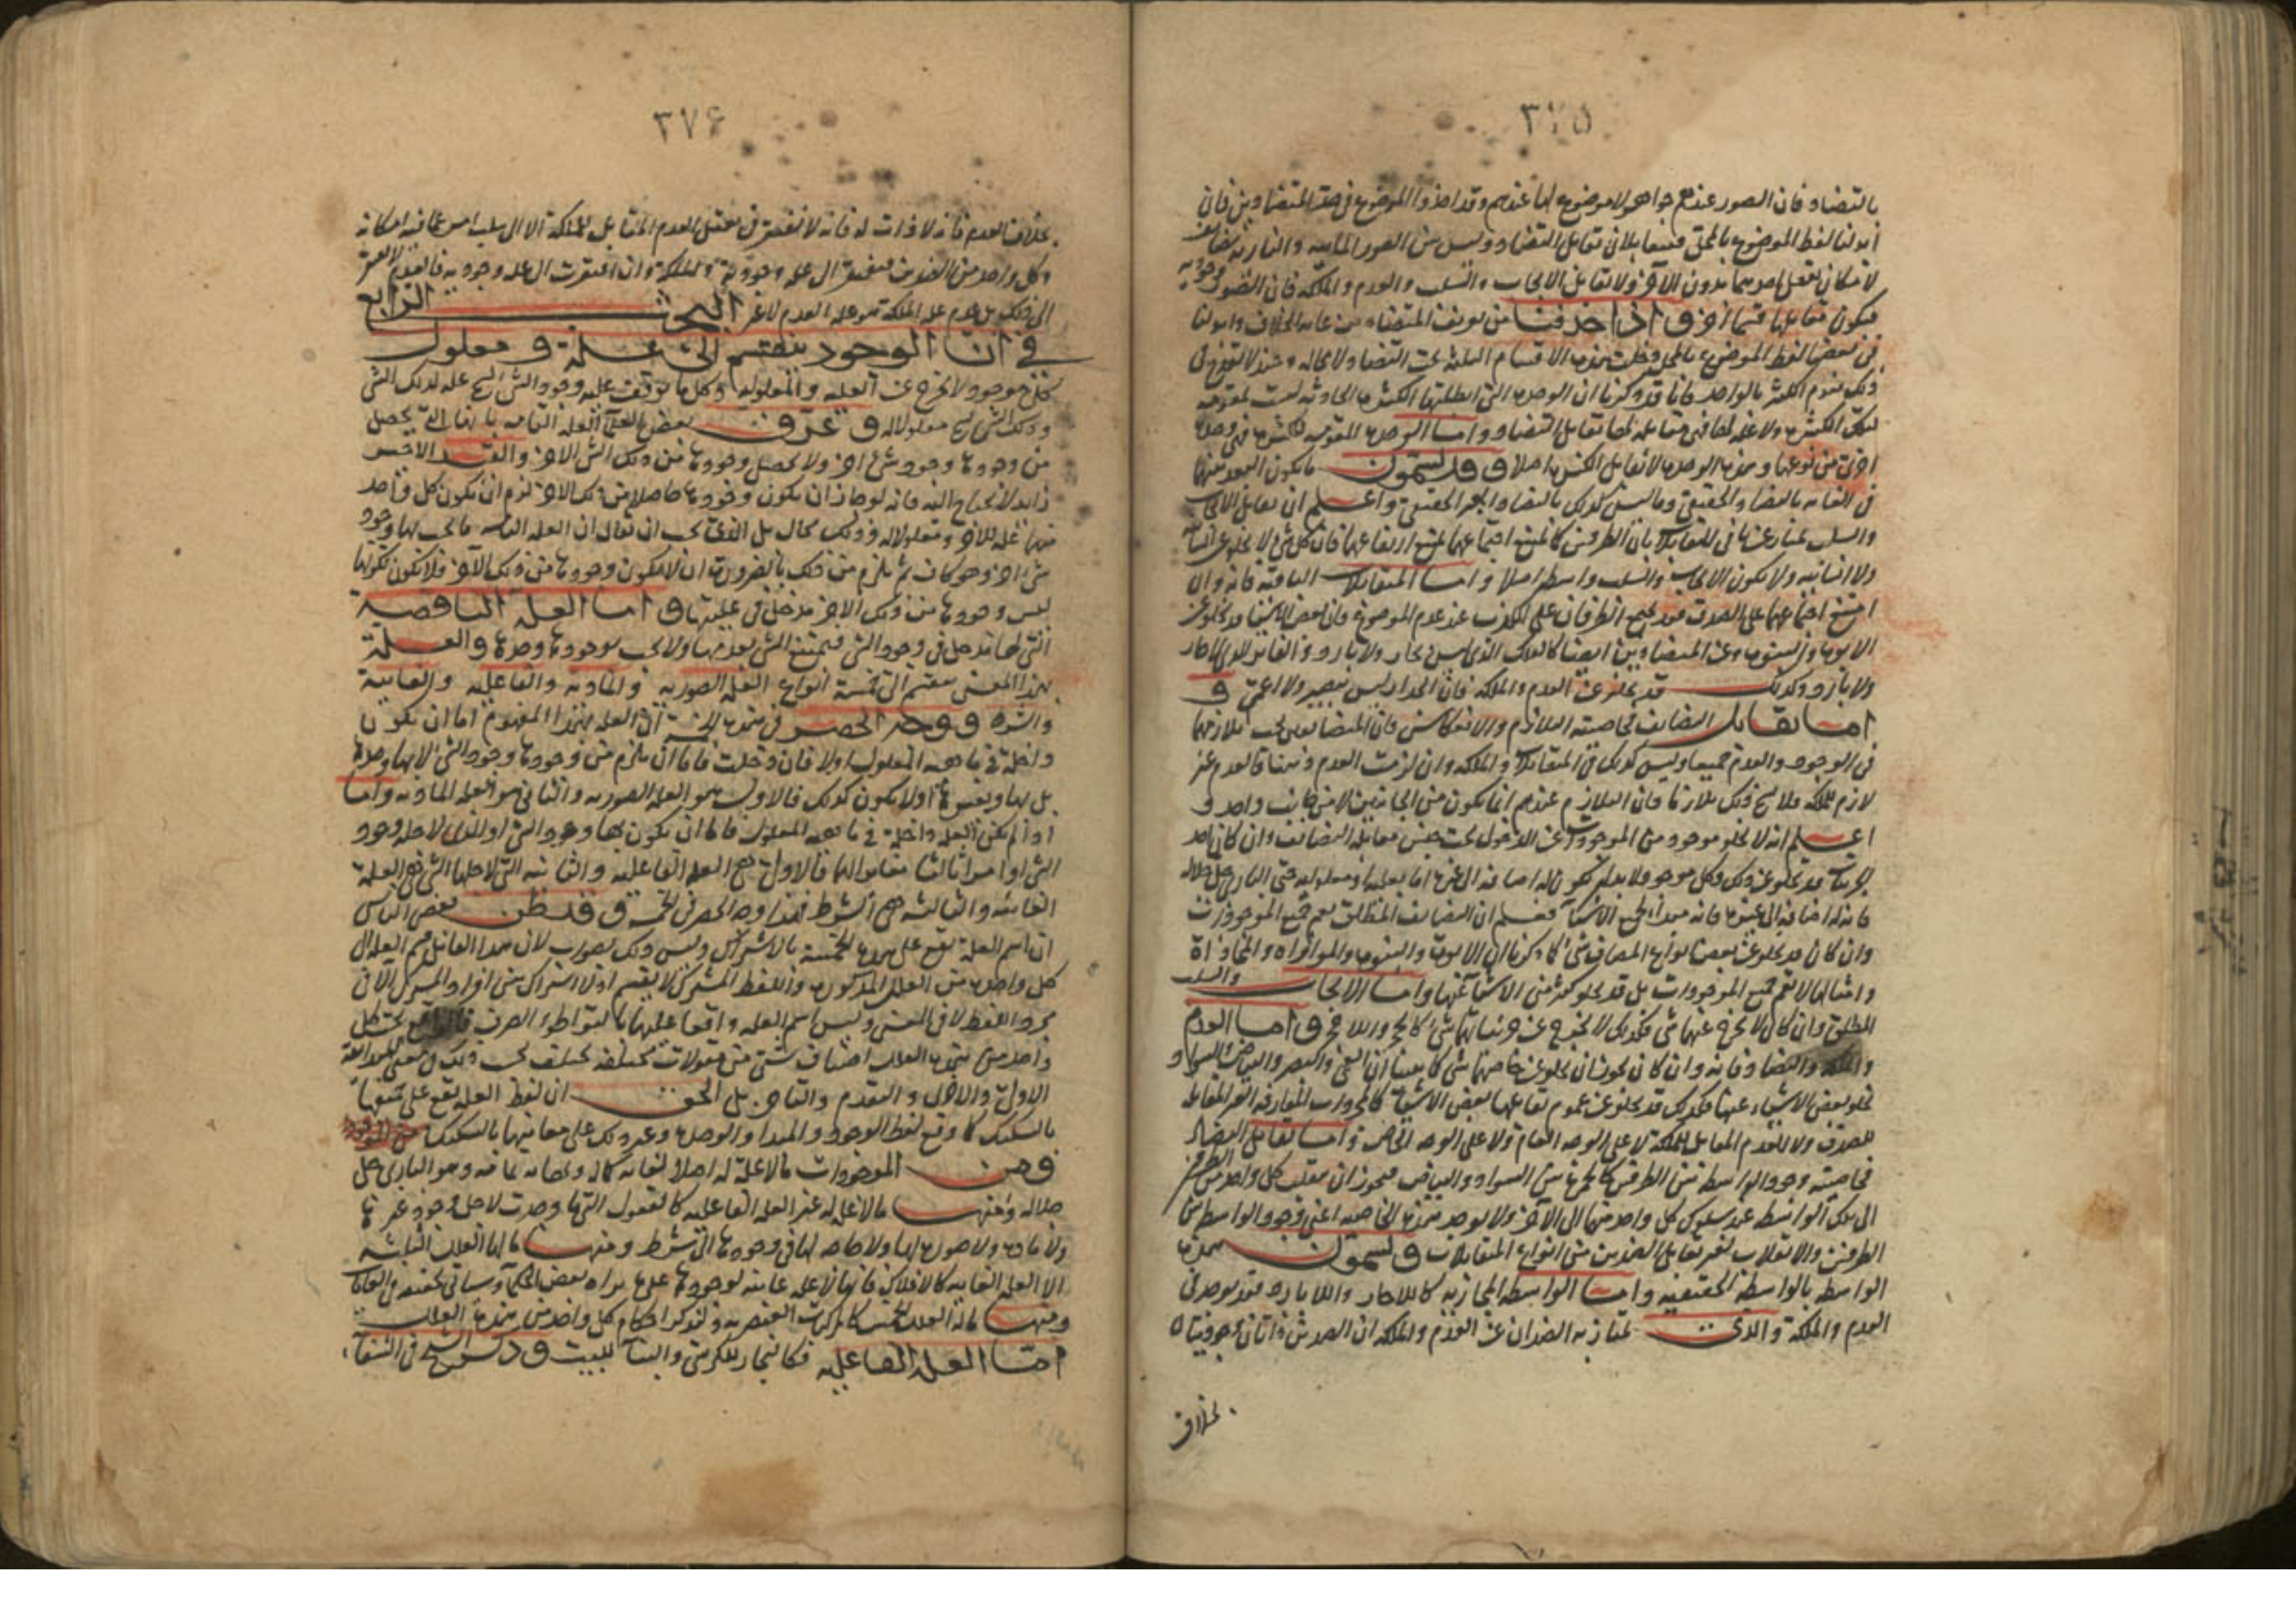 ٣٧٥
بالتضاد فان الصور عندهم جواهر لا موضوع لها عندهم وقد اخذوا الموضوع فى حد المتضادين فان
ابدلنا لفظ الموضوع بالمحل فيتقابلان تقابل التضاد وليس بين الصور المائيه والناريه تضايف
لامكان تعقل احدهما بدون الآخر ولا تقابل الايجاب والسلب والعدم والملكه فان الصور وجوديه
فيكون تقابلها قسما آخر و اذا حذفنا من تعريف المتضادين غايه الخلاف وابدلنا
فى بعضها لفظ الموضوع بالمحل دخلت هذه الاقسام الثلثه تحت التضاد لا محاله
ذلك تقوم الكثره بالواحد فانا قد ذكرنا ان الوحده التى ابطلتها الكثره الحادثه ليست بمقومه
لتلك الكثره ولا عله لها فهى مقابله لها تقابل التضاد واما الوحده المقومه للكثره فهى وحده
اخرى من نوعها وهذه الوحده لا تقابل الكثره اصلا و قد يسمون ما يكون البعد بينهما
فى الغايه بالتضاد الحقيقى وما ليس كذلك بالتضاد الغير الحقيقى واعلم ان تقابل الايجاب
والسلب يمتاز عنها فى المتقابلات بان الطرفين كما يمتنع اجتماعهما يمتنع ارتفاعهما فان كل شئ لا يخلو عن انسانيه
ولا انسانيه ولا يكون للايجاب والسلب واسطه اصلا واما المتقابلات الباقيه فانه وان
امتنع اجتماعهما على الصدق فقد يجتمع الطرفان على الكذب عند عدم الموضوع فان بعض الاشياء قد يخلو عن
الابوه والبنوه وعن المتضادين ايضا كالفلك الذى ليس بحار ولا بارد والفاتر الذى لا حار
ولا بارد وكذلك قد يخلو عن العدم والملكه فان الجدار ليس ببصير ولا اعمى و
اما تقابل التضايف فخاصيته التلازم والانعكاس فان المتضايفين يجب تلازمهما
فى الوجود والعدم جميعا وليس كذلك فى المتقابلات والملكه وان لزمت العدم وضعا فالعدم غير
لازم للملكه فلا يصح ذلك تلازما فان التلازم عندهم انما يكون من الجانبين لا من جانب واحد و
اعلم انه لا يخلو موجود من الموجودات عن الدخول تحت جنس مقابله التضايف وان كان احد
الجزئيات قد يخلو عن ذلك وكل موجود فلا بد ان تكون له اضافه الى غيره اما بعليه او معلوليه حتى البارى جل جلاله
فانه له اضافه الى غيره فانه مبدأ لجميع الاشياء فعلم ان التضايف المطلق يعم جميع الموجودات
وان كان قد يخلو عن بعض انواع المضاف شئ كما ذكرنا ان الابوه والبنوه والموازاه والمحاذاة
وامثالها لا تعم جميع الموجودات بل قد يخلو كثير من الاشياء عنها واما الايجاب والسلب
المطلق وان كان لا يخرج عنهما شئ فكذلك لا يخرج عن جزئياتهما شئ كالحجر واللاحجر و اما العدم
والملكه والتضاد فانه وان كان يجوز ان يخلو عن خاصهما شئ كما بينا ان العمى والبصر والبياض والسواد
تخلو بعض الاشياء عنها فكذلك قد يخلو عن عموم تقابلهما بعض الاشياء كالمجردات المفارقه الغير المقابله
للضد ولا للعدم المقابل للملكه لا على الوجه العام ولا على الوجه الخاص واما تقابل التضاد
فخاصيته وجود الواسطه بين الطرفين كالحمره بين السواد والبياض فيجوز ان ينقلب كل واحد من الطرفين
الى تلك الواسطه عند سلوك كل واحد منهما الى الآخر ولا يوجد هذه الخاصيه اعنى وجود الواسطه بين
الطرفين والانقلاب لغير تقابل الضدين من انواع المتقابلات و يسمون هذه
الواسطه بالواسطه الحقيقيه واما الواسطه المجازيه كاللاحار واللابارد فقد يوجد فى
العدم والملكه والذى يمتاز به الضدان عن العدم والملكه ان الضدين ذاتان وجوديتان
بخلاف
٣٧٦
بخلاف العدم فانه لا ذات له فانه لا يفتقر فى تعقل العدم المقابل للملكه الا الى سلب امر عما فيه امكانه
وكل واحد من الضدين يفتقر الى عله وجوديه والملكه وان افتقرت الى عله وجوديه فالعدم لا يفتقر
الى ذلك بل عدم عله الملكه هو عله العدم لا غير البحث الرابع
فى ان الوجود ينقسم الى علة و معلول
كل موجود لا يخرج عن العليه والمعلوليه وكل ما توقف عليه وجود الشئ يسمى عله لذلك الشئ
وذلك الشئ يسمى معلولا له و عرف بعض العلماء العله التامه بانها التى يحصل
من وجودها وجود شئ آخر ولا يحصل وجودها من ذلك الشئ الآخر والقيد الاخير
زايد لا يحتاج اليه فانه لو جاز ان يكون وجودها حاصلا من ذلك الآخر لزم ان يكون كل واحد
منهما عله للآخر ومعلولا له وذلك محال بل الذى يجب ان يقال ان العله التامه ما يجب بها وجود
شئ آخر وهو كاف ثم يلزم من ذلك بالضرورة ان لا يكون وجودها من ذلك الآخر فلا يكون لكونها
ليس وجودها من ذلك الآخر مدخل فى عليتها و اما العلة الناقصة
التى لها مدخل فى وجود الشئ فيمتنع الشئ بعدمها ولا يجب بوجودها وحدها والعلة
بهذا المعنى ينقسم الى خمسة انواع العله الصوريه والماديه والفاعليه والغايية
والشرط و وجه الحصر فى هذه الخمسة ان العله بهذا المفهوم اما ان يكون
داخلة فى ماهيه المعلول او لا فان دخلت فاما ان يلزم من وجودها وجود الشئ لا بها وحدها
بل بها وبغيرها او لا يكون كذلك فالاول هو العله الصوريه والثانى هو العله الماديه واما
اذا لم يكن العله داخلة فى ماهيه المعلول فاما ان يكون بها وجود الشئ او الذى لاجله وجود
الشئ او امرا ثالثا مغايرا لهما فالاول هى العله الفاعليه والثانيه التى لاجلها الشئ فهى العلة
الغائيه والثالثه هى الشرط فهذا وجه الحصر فى الخمسة و قد ظن بعض الناس
ان اسم العلة يقع على هذه الخمسة بالاشتراك وليس ذلك بصواب لان هذا القائل قسم العله الى
كل واحده من العلل المذكوره واللفظ المشترك لا ينقسم اذ لا اشتراك بين افراد المشترك الا فى
مجرد اللفظ لا فى المعنى وليس اسم العله واقعا عليها بالتواطؤ الصرف
واحد من هذه العلل اصناف شتى من مقولات مختلفه
الاولى والاخرى والتقدم والتاخر بل الحق ان لفظ العله يقع على جميعها
بالتشكيك كما وقع لفظ الوجود والمبدا والوحده وغير ذلك على معانيها بالتشكيك
و من الموجودات مالا علة له اصلا لغايه كماله ونهايه تمامه وهو البارى جل
جلاله ومنها مالا عله له غير العله الفاعليه كالعقول التى ما وجدت لاجل وجود غيرها
ولا ماده ولا صوره لها ولا حاجه لها فى وجودها الى شرط ومنها مالها العلل الثلثه
الا العله الغايه كالافلاك فانها لا عله غايئه لوجودها على ما يراه بعض الحكماء وسياتى تحقيقه
ومنها ماله العلل الخمس كالمركبات العنصريه ولنذكر احكام كل واحد من هذه العلل
اما العله الفاعليه فكالنجار للكرسى والبنآ للبيت و ذكر الشيخ فى الشفا